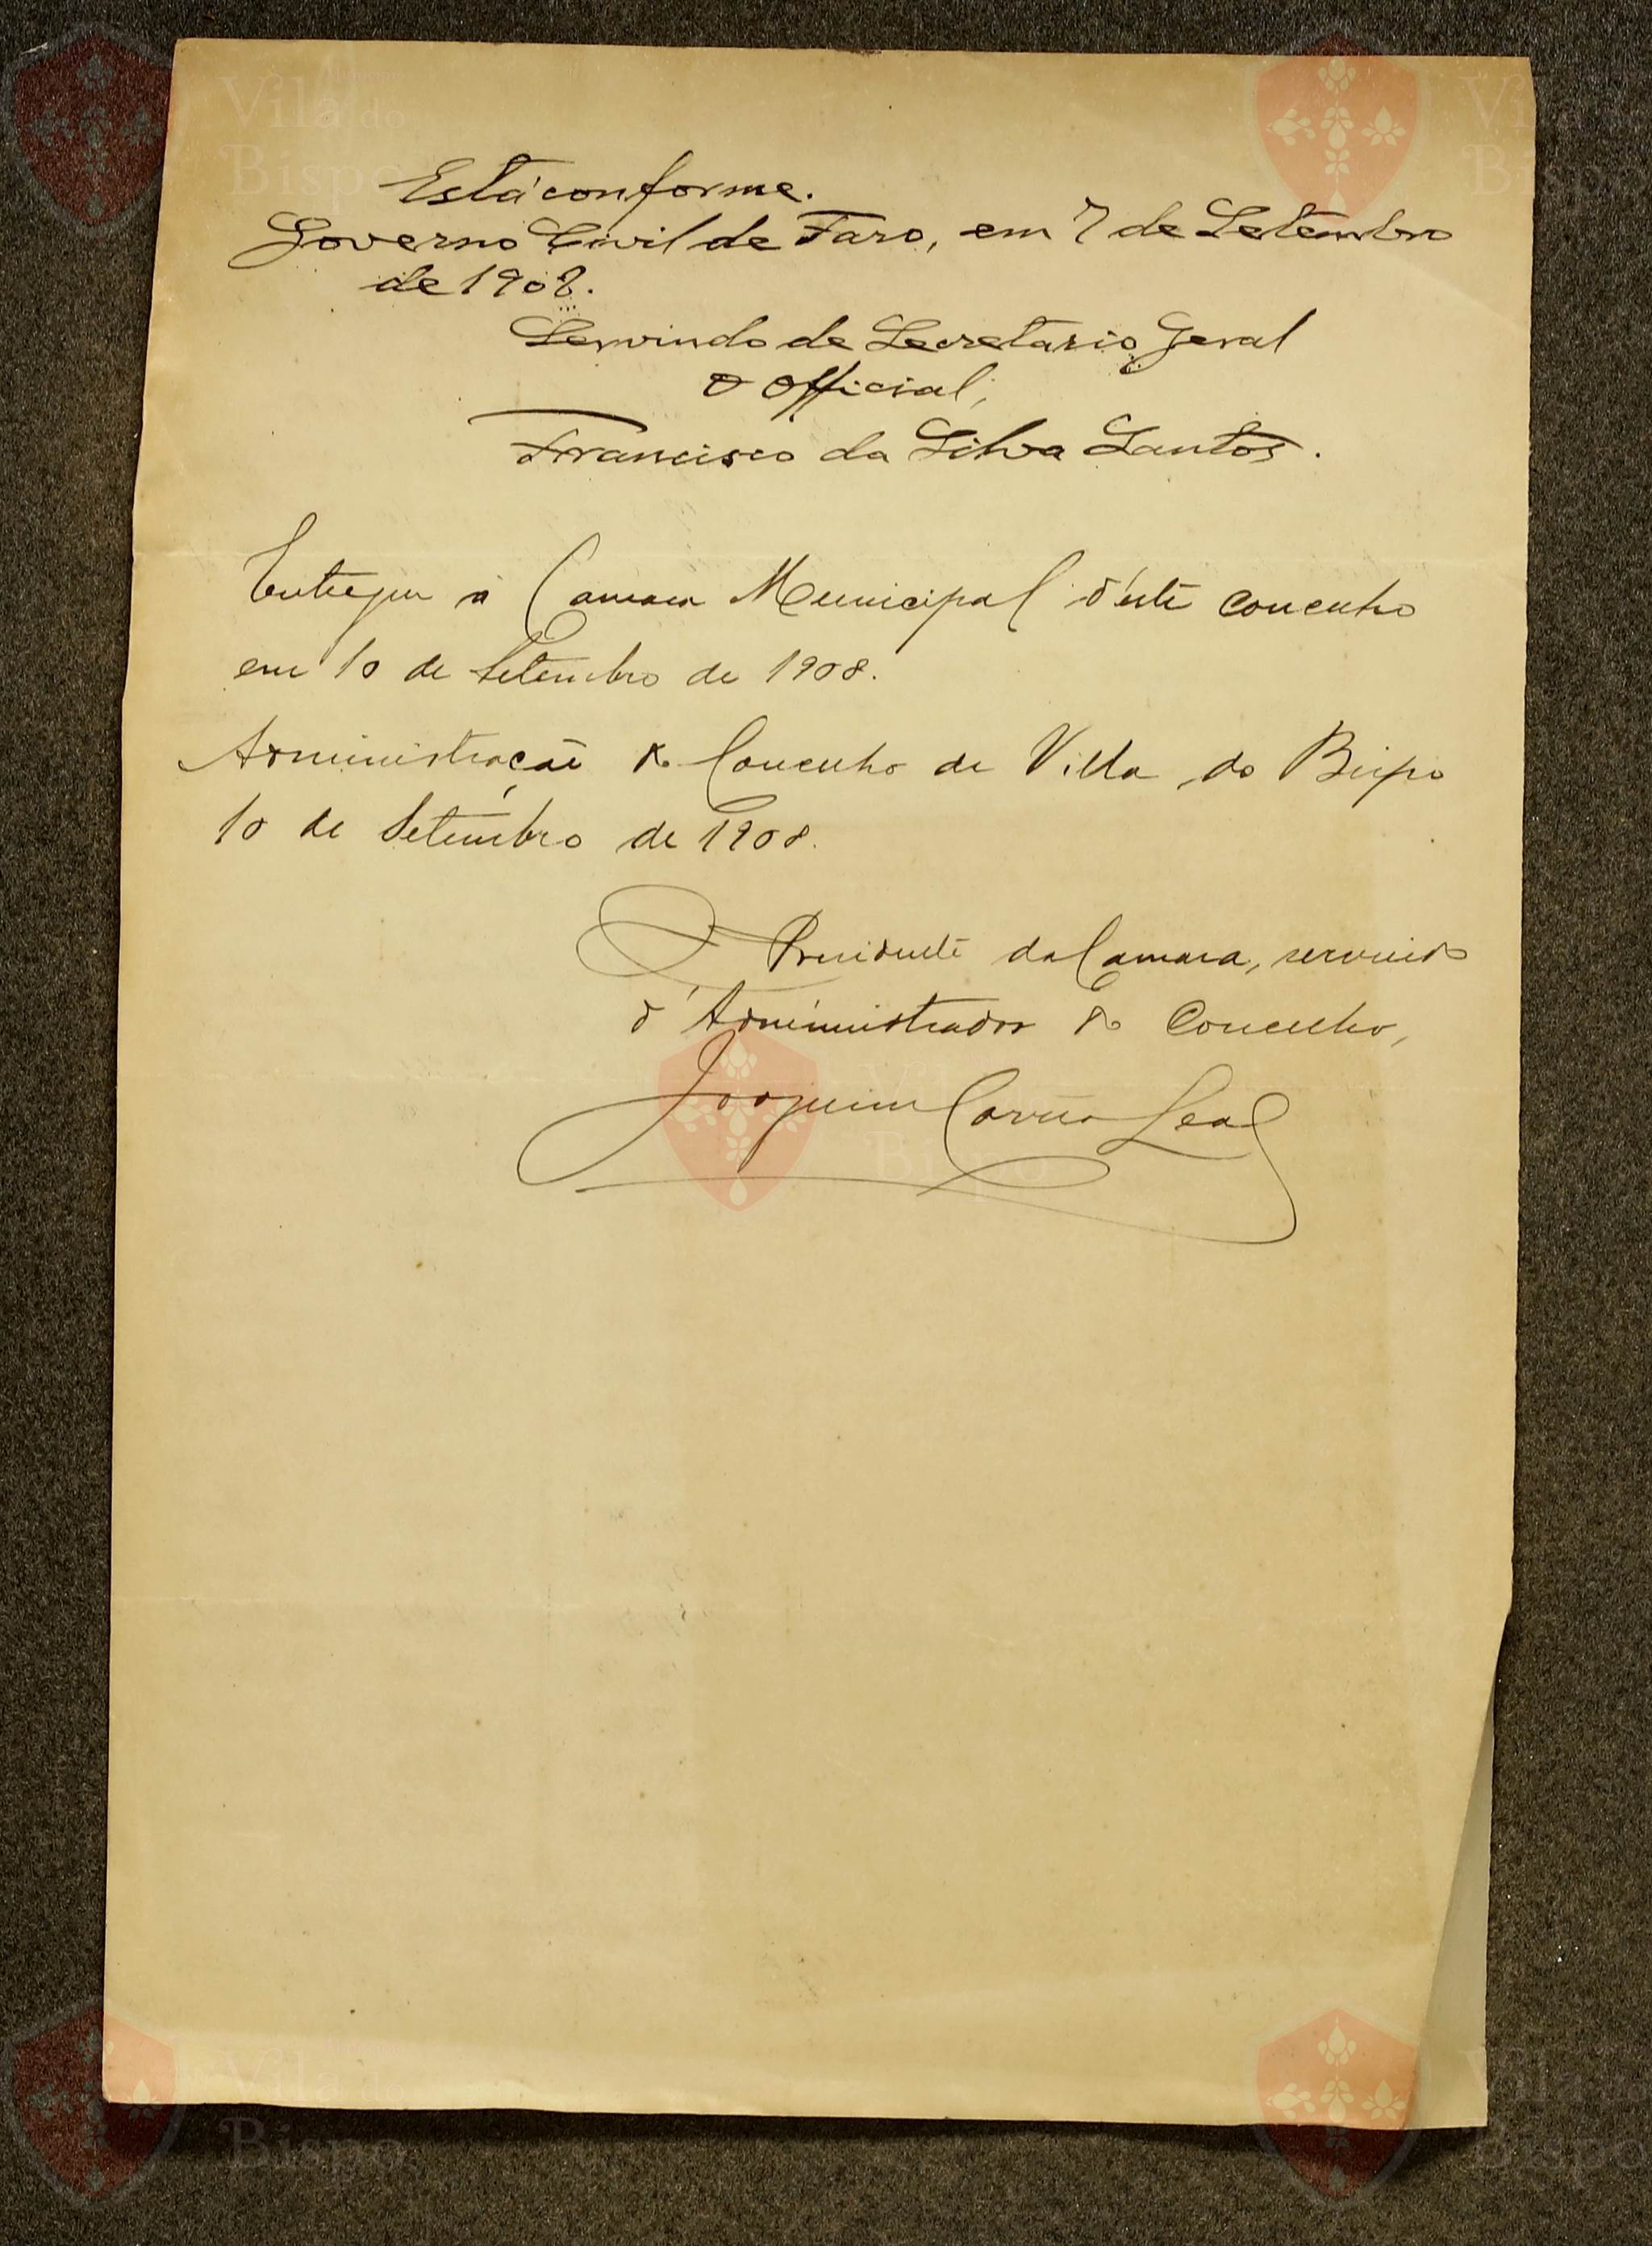 Está conforme.
Governo Civil de Faro, em 7 de Setembro
de 1908.
Servindo de Secretario Geral
O Official,
Francisco da Silva Santos.
Entregue á Camara Municipal d'este concelho
em 10 de Setembro de 1908.
Administração do Concelho de Villa do Bispo
10 de Setembro de 1908.
O Presidente da Camara, servindo
d'Administrador do Concelho,
Joaquim Correia Leal
Vila do
Bispo